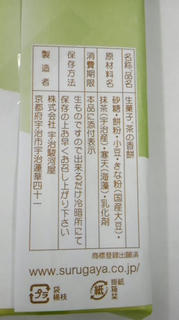 名称・品名 生菓子・茶の香餅
原材料名 砂糖・餅粉・小豆・きな粉(国産大豆)・
抹茶(宇治産)・寒天(海藻)・乳化剤
消費期限 本品に添付表示
保存方法 生ものですので出来るだけ冷暗所にて
保存の上お早くお召し上がり下さい
製造者 株式会社 宇治駿河屋
京都府宇治市宇治蓮華四十一
商標登録出願済
www.surugaya.co.jp/
プラ
袋・個枝
紙
掛紙・箱